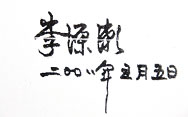 李源澎
二〇〇八年五月五日